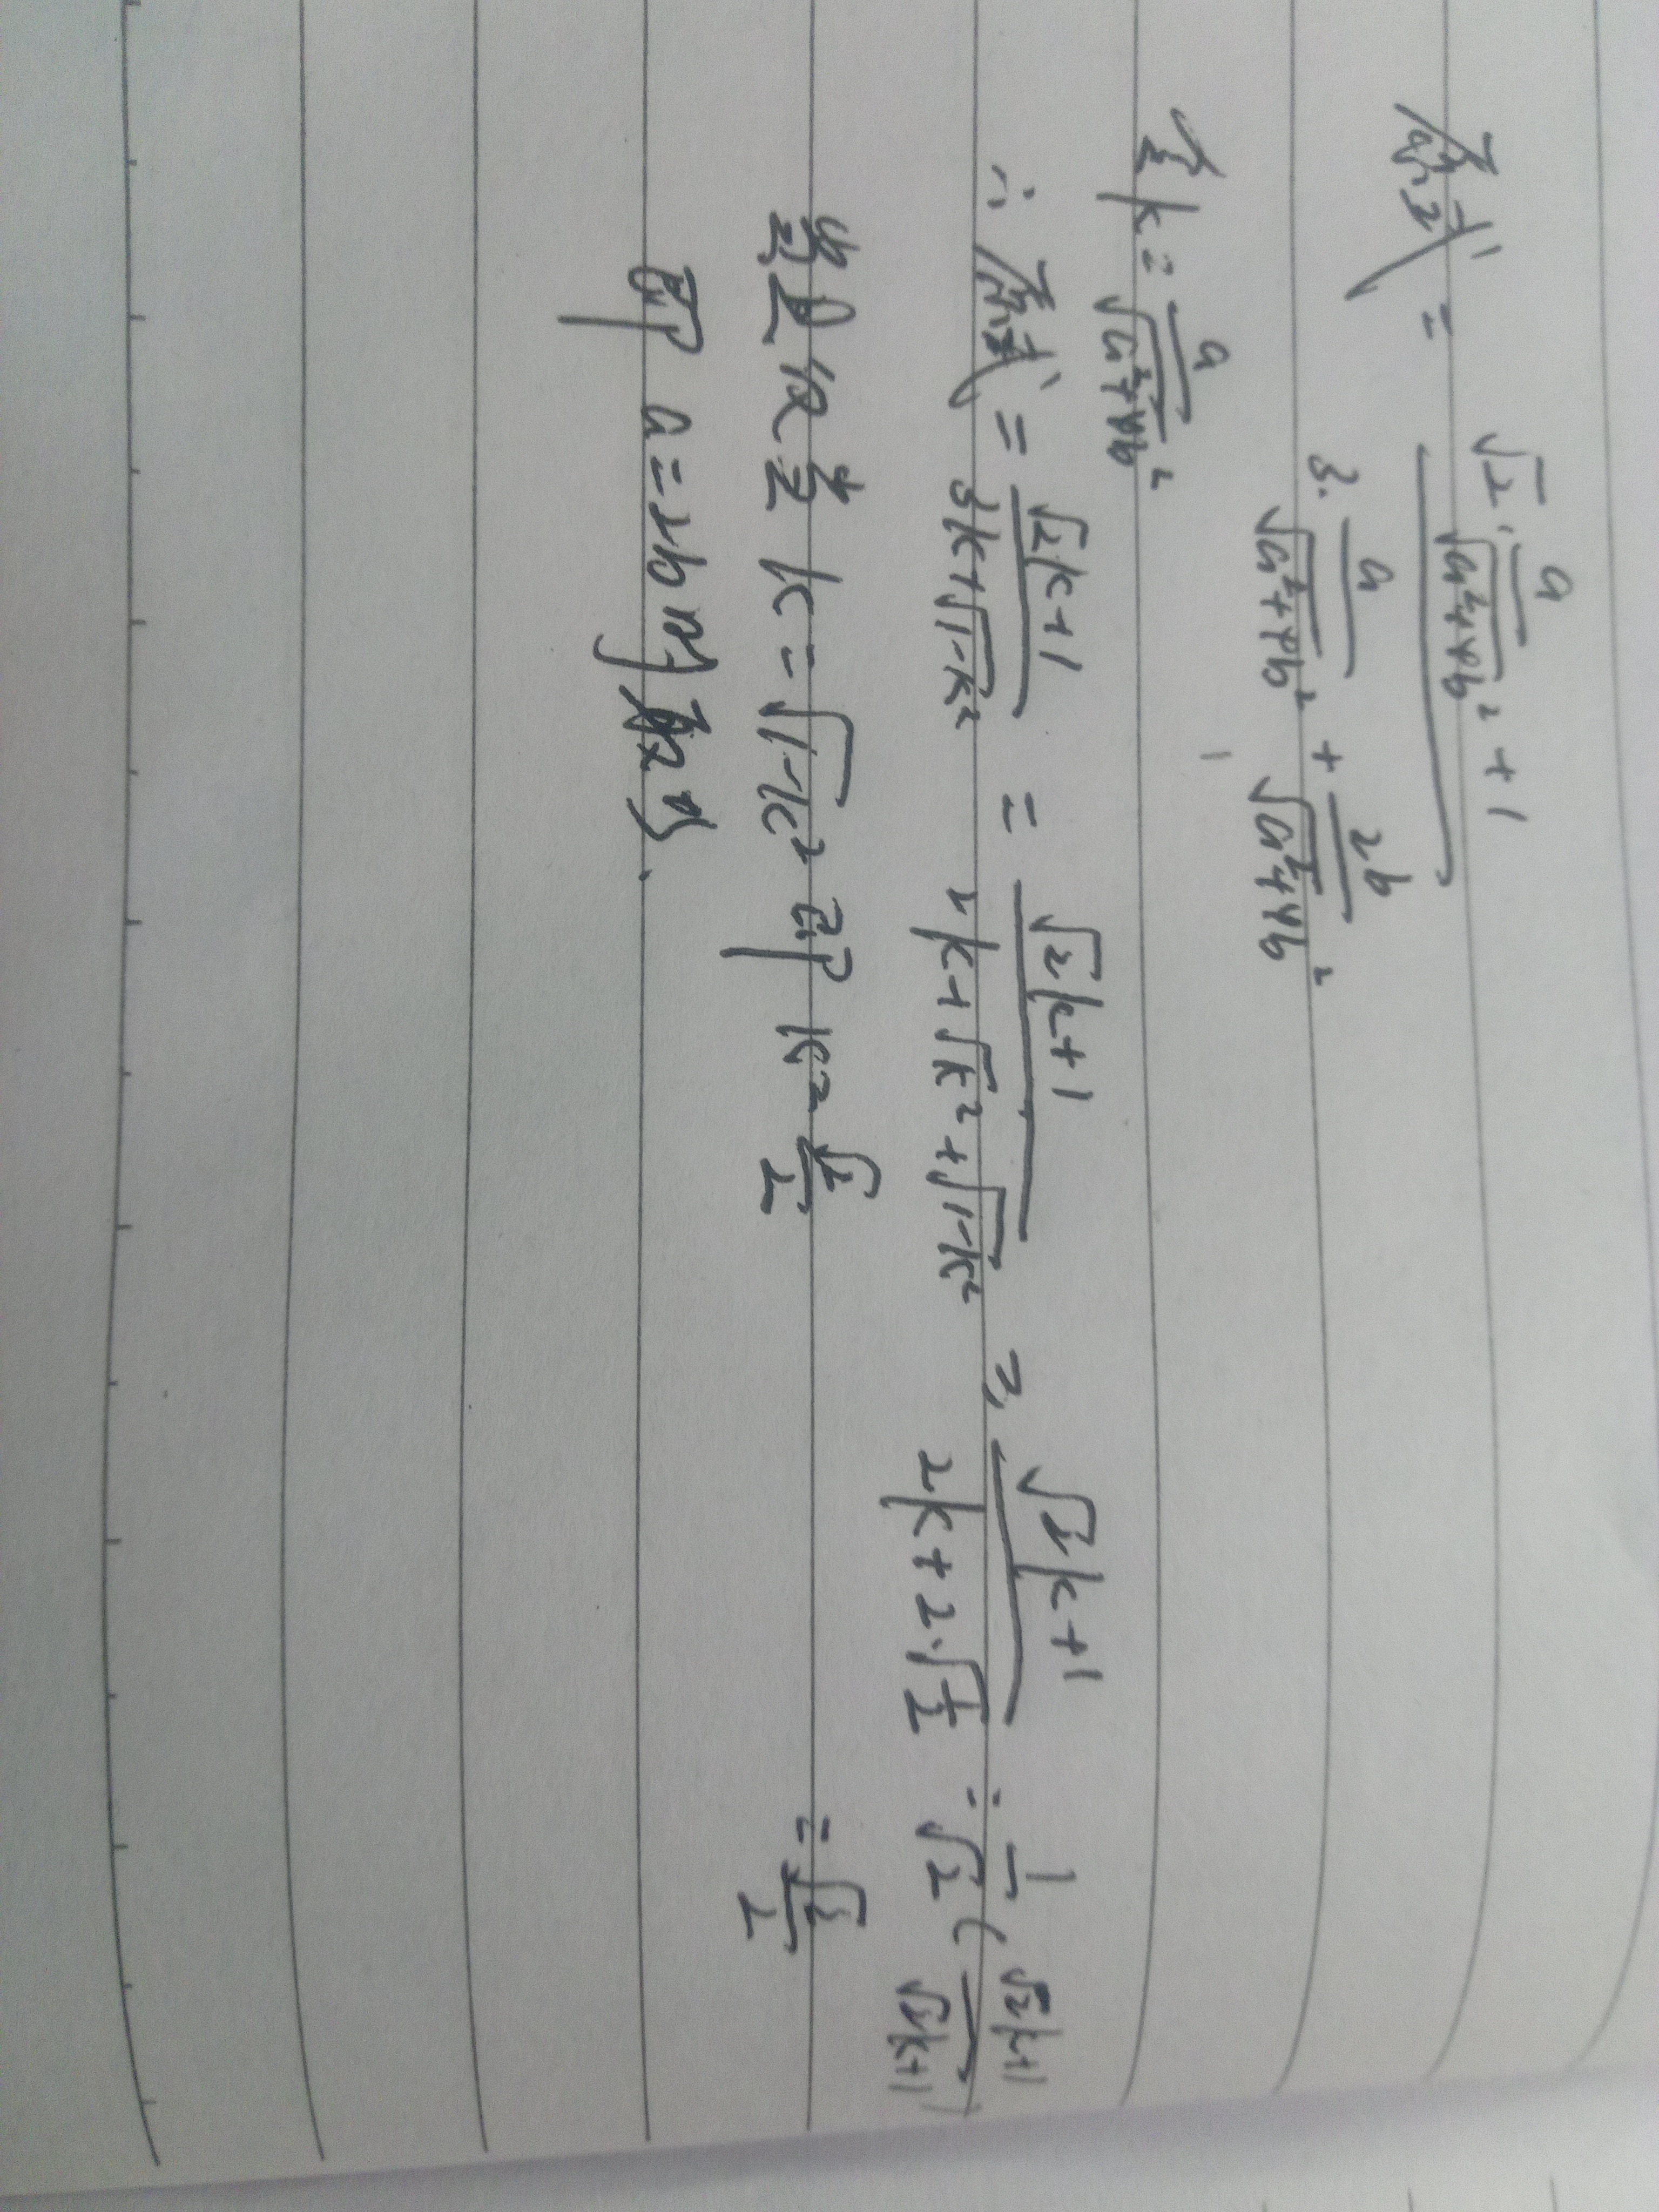 原式 = (√2·a/√(a²+4b²) + 1) / (3·a/√(a²+4b²) + 2b/√(a²+4b²))
令 k = a/√(a²+4b²)
∴ 原式 = (√2k+1)/(3k+√(1-k²)) = (√2k+1)/(2k+√k²+√(1-k²)) ≥ (√2k+1)/(2k+2·√(1/2)) = 1/√2 (√2k+1)/(√2k+1)
= √2/2
当且仅当 k=√(1-k²) 即 k=√2/2
即 a=2b时取得.